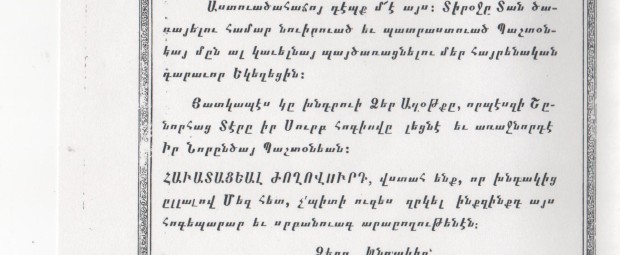 Աստուածահաճոյ դէպք մ՚է այս: Տիրոջը Տան ծա-
ռայելու համար նուիրուած եւ պատրաստուած Պաշտօն-
եայ մըն ալ կաւելնայ պայծառացնելու մեր Հայրենական
դարաւոր Եկեղեցին:
Յատկապէս կը խնդրուի Ձեր Աղօթքը, որպէսզի Շը-
նորհաց Տէրը իր Սուրբ հոգիովը լեցնէ եւ առաջնորդէ
Իր Նորընծայ Պաշտօնեան:
ՀԱՒԱՏԱՑԵԱԼ ԺՈՂՈՎՈՒՐԴ, վստահ ենք, որ խնդակից
ըլլալով Մեզ հետ, չ՚պիտի ուզես զրկել ինքզինքդ այս
հոգեպարար եւ սրբանուագ արարողութենէն: